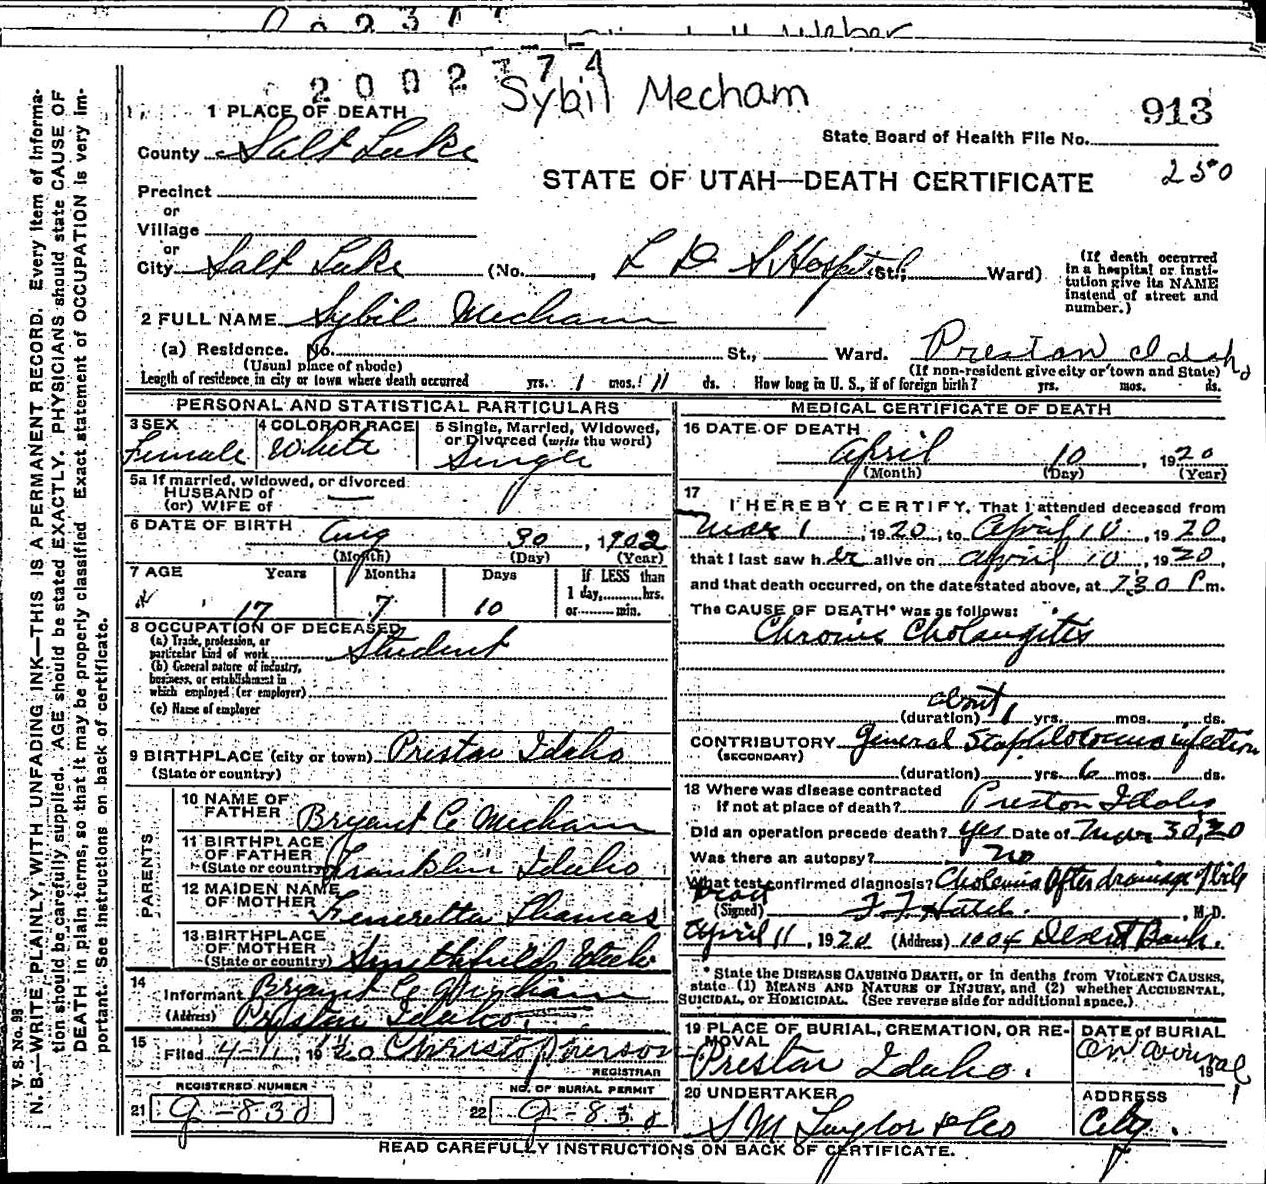 2002374
Sybil Mecham
913
1 PLACE OF DEATH
State Board of Health File No.
County Salt Lake
250
STATE OF UTAH—DEATH CERTIFICATE
Precinct
or
Village
or
City Salt Lake (No. , L D S Hospital St.; Ward)
(If death occurred in a hospital or insti-
tution give its NAME
instead of street and
number.)
2 FULL NAME Sybil Mecham
(a) Residence. No. St., Ward. Preston Idaho
(Usual place of abode) (If non-resident give city or town and State)
Length of residence in city or town where death occurred yrs. 1 mos. 11 ds. How long in U. S., if of foreign birth? yrs. mos. ds.
PERSONAL AND STATISTICAL PARTICULARS
3 SEX
Female
4 COLOR OR RACE
White
5 Single, Married, Widowed,
or Divorced (write the word)
Single
5a If married, widowed, or divorced
HUSBAND of
(or) WIFE of
6 DATE OF BIRTH
Aug 30, 1902
(Month) (Day) (Year)
7 AGE Years Months Days If LESS than
1 day, hrs.
or min.
17 7 10
8 OCCUPATION OF DECEASED
(a) Trade, profession, or
particular kind of work Student
(b) General nature of industry,
business, or establishment in
which employed (or employer)
(c) Name of employer
9 BIRTHPLACE (city or town) Preston Idaho
(State or country)
PARENTS
10 NAME OF
FATHER Bryant C Mecham
11 BIRTHPLACE
OF FATHER
(State or country) Franklin Idaho
12 MAIDEN NAME
OF MOTHER Feneretta Thomas
13 BIRTHPLACE
OF MOTHER
(State or country) Smithfield Utah
14
Informant Bryant C Mecham
(Address) Preston Idaho.
15
Filed 4-11, 1920
REGISTRAR
REGISTERED NUMBER NO. OF BURIAL PERMIT
21 G-830 22 G-830
MEDICAL CERTIFICATE OF DEATH
16 DATE OF DEATH
April 10, 1920
(Month) (Day) (Year)
17
I HEREBY CERTIFY, That I attended deceased from
Mar 1, 1920, to April 10, 1920,
that I last saw her alive on April 10, 1920,
and that death occurred, on the date stated above, at 7.30 P m.
The CAUSE OF DEATH* was as follows:
Chronic Cholangitis
about
(duration) 1 yrs. mos. ds.
CONTRIBUTORY General Staphilococcus infection
(SECONDARY)
(duration) yrs. 6 mos. ds.
18 Where was disease contracted
if not at place of death? Preston Idaho
Did an operation precede death? Yes Date of Mar 30, 20
Was there an autopsy? No
What test confirmed diagnosis? Cholemia After drainage of bile
(Signed) F. F. Hatch. , M.D.
April 11, 1920 (Address) 1004 Deseret Bank.
* State the DISEASE CAUSING DEATH, or in deaths from VIOLENT CAUSES,
state (1) MEANS AND NATURE OF INJURY, and (2) whether ACCIDENTAL,
SUICIDAL, or HOMICIDAL. (See reverse side for additional space.)
19 PLACE OF BURIAL, CREMATION, OR RE-
MOVAL
Preston Idaho.
DATE of BURIAL
On arrival
19
20 UNDERTAKER
S M Taylor & Co
ADDRESS
City.
READ CAREFULLY INSTRUCTIONS ON BACK OF CERTIFICATE.
V. S. No. 98
N. B.—WRITE PLAINLY, WITH UNFADING INK—THIS IS A PERMANENT RECORD. Every item of informa-
tion should be carefully supplied. AGE should be stated EXACTLY. PHYSICIANS should state CAUSE OF
DEATH in plain terms, so that it may be properly classified. Exact statement of OCCUPATION is very im-
portant. See instructions on back of certificate.